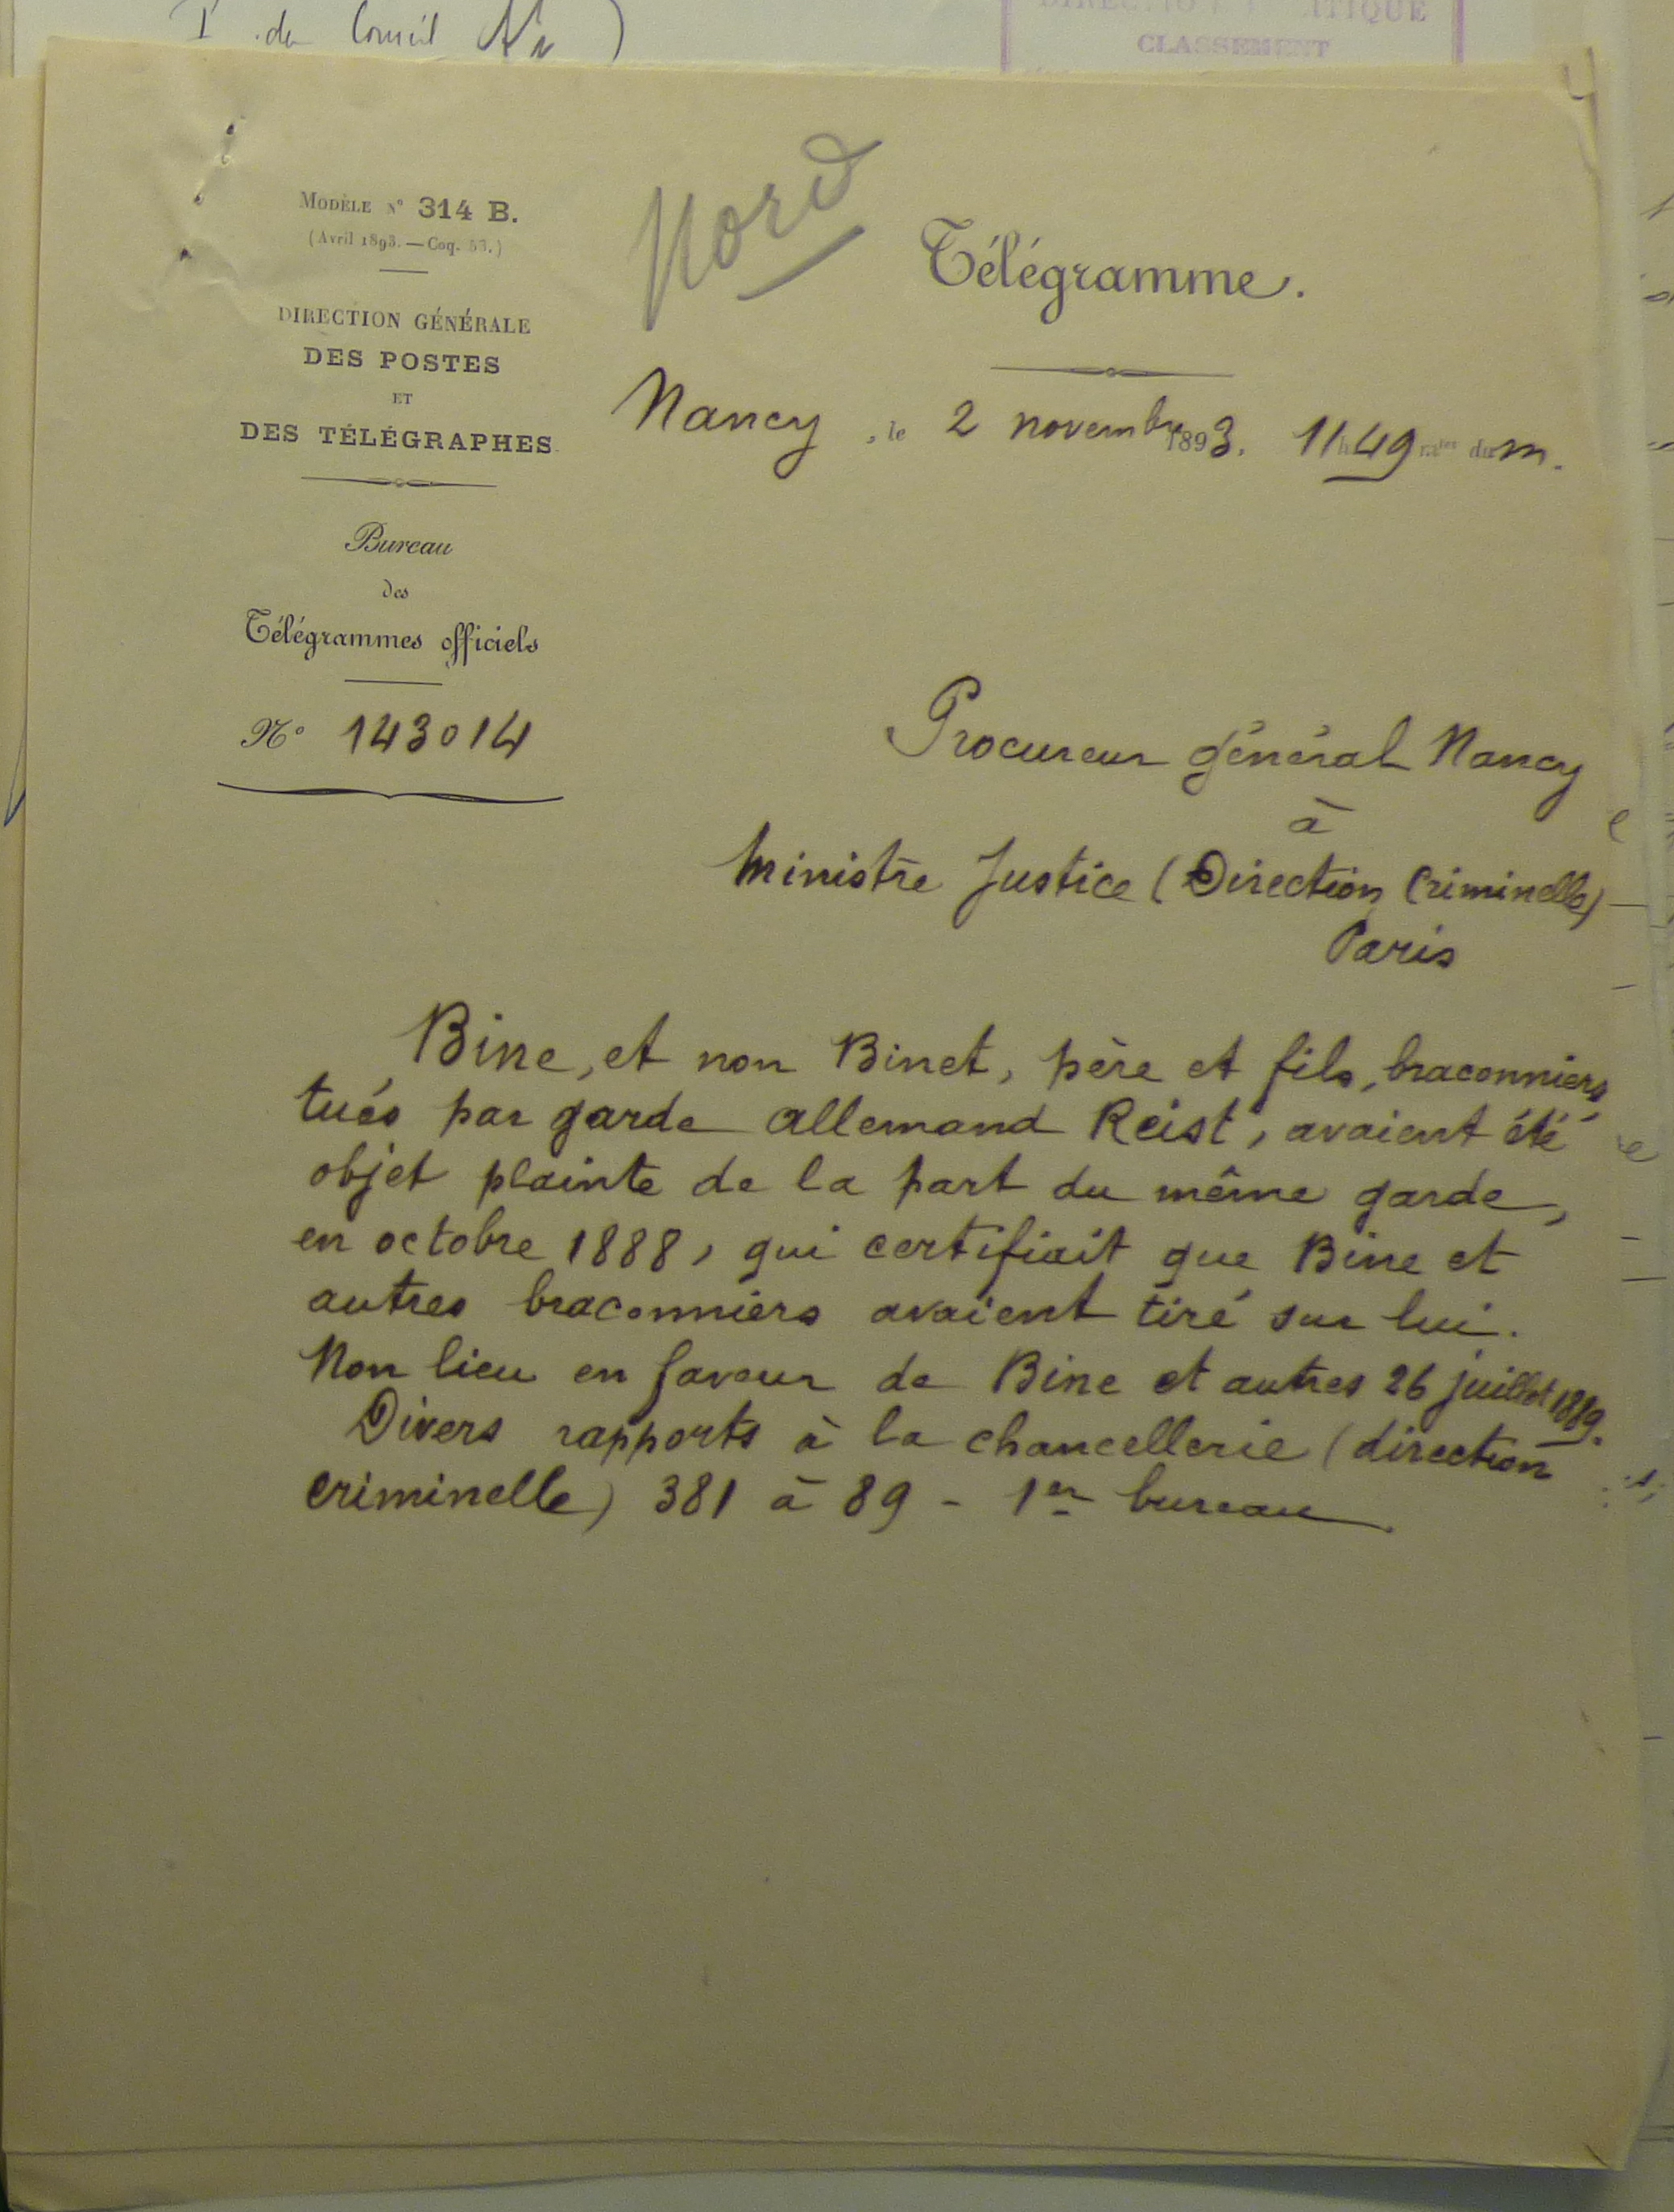 du Conseil
CLASSEMENT
MODÈLE N° 314 B.
(Avril 1893. — Coq. 53.)
DIRECTION GÉNÉRALE
DES POSTES
ET
DES TÉLÉGRAPHES
Bureau
des
Télégrammes officiels
N° 143014
Nord
Télégramme.
Nancy, le 2 novembre 1893. 11h 49 mtes du m.
Procureur général Nancy
à
Ministre Justice (Direction Criminelle)
Paris
Bine, et non Binet, père et fils, braconniers
tués par garde allemand Reist, avaient été
objet plainte de la part du même garde,
en octobre 1888, qui certifiait que Bine et
autres braconniers avaient tiré sur lui.
Non lieu en faveur de Bine et autres 26 juillet 1889.
Divers rapports à la chancellerie (direction
criminelle) 381 à 89 - 1er bureau